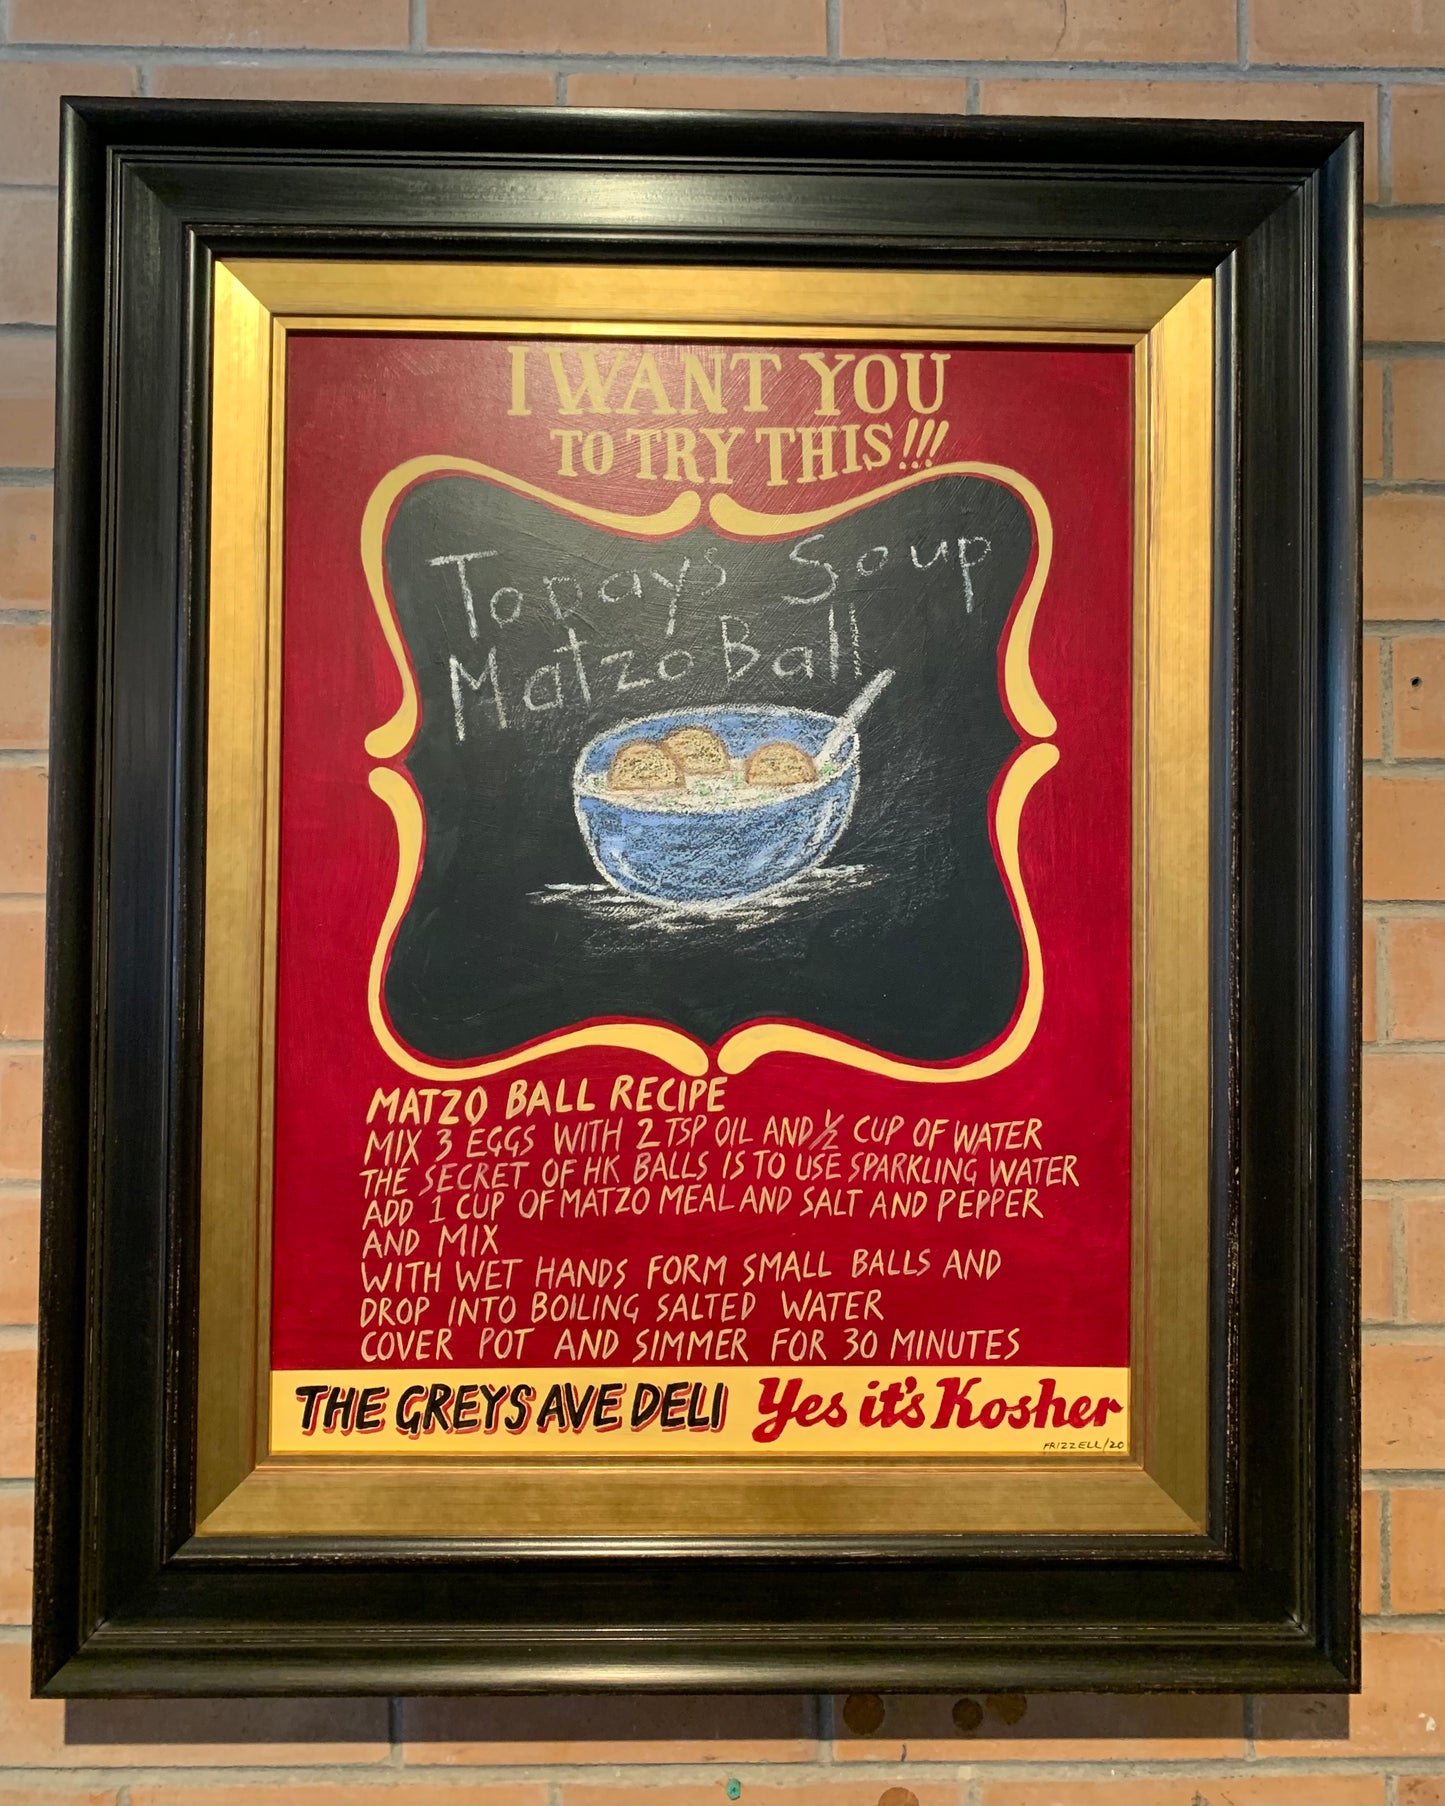 I WANT YOU
TO TRY THIS!!!
Todays Soup
Matzo Ball
MATZO BALL RECIPE
MIX 3 EGGS WITH 2 TSP OIL AND ½ CUP OF WATER
THE SECRET OF HK BALLS IS TO USE SPARKLING WATER
ADD 1 CUP OF MATZO MEAL AND SALT AND PEPPER
AND MIX
WITH WET HANDS FORM SMALL BALLS AND
DROP INTO BOILING SALTED WATER
COVER POT AND SIMMER FOR 30 MINUTES
THE GREYS AVE DELI Yes it's Kosher
FRIZZELL/20